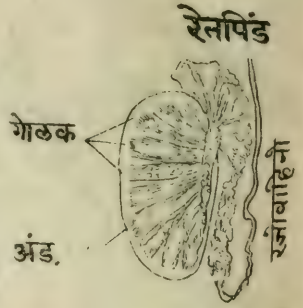 रेतपिंड
गोलक
अंड.
रजोवाहिनी